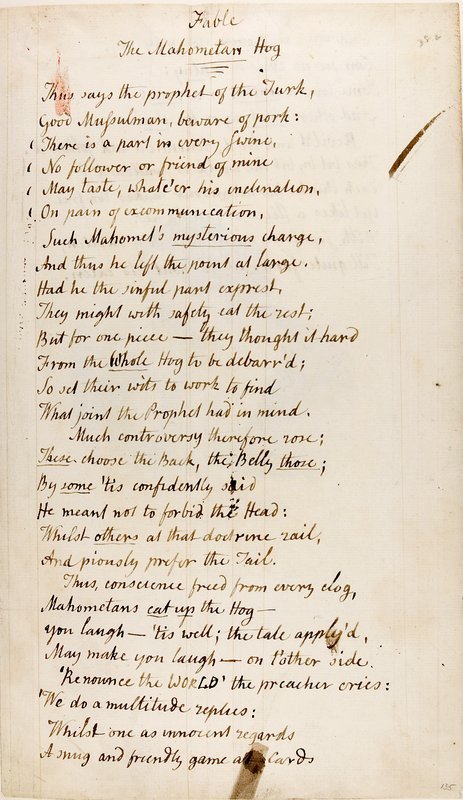 Fable
The Mahometan Hog
Thus says the prophet of the Turk,
Good Mussulman, beware of pork:
There is a part in every swine,
No follower or friend of mine
May taste, whate'er his inclination,
On pain of excommunication,
Such Mahomet's mysterious charge,
And thus he left the point at large.
Had he the sinful part exprest,
They might with safety eat the rest;
But for one piece — they thought it hard
From the Whole Hog to be debarr'd;
So set their wits to work to find
What joint the Prophet had in mind.
Much controversy therefore rose;
These choose the Back, the Belly those;
By some 'tis confidently said
He meant not to forbid the Head:
Whilst others at that doctrine rail,
And piously prefer the Tail.
Thus, conscience freed from every clog,
Mahometans eat up the Hog —
you laugh — 'tis well; the tale apply'd,
May make you laugh — on t'other side.
'Renounce the WORLD' the preacher cries:
'We do a multitude replies:
Whilst one as innocent regards
A snug and friendly game at Cards
135